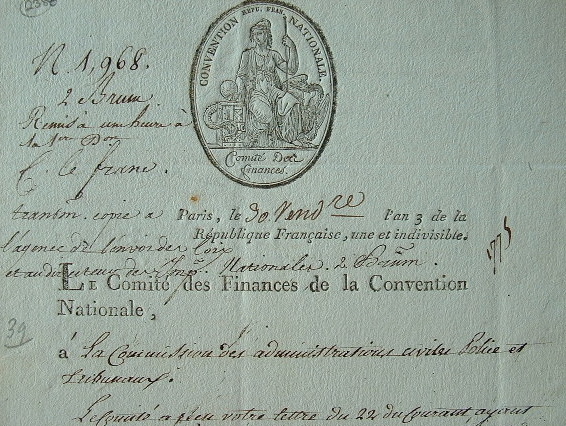 N. 1,968.
2 Brum.
Remis à une heure à
C. le franc.
CONVENTION RÉPU. FRAN. NATIONALE.
Comité Des
Finances.
transm. copie a
l'agence de l'envoi des loix
et au directeur des Imp. Nationales. 2 Brum.
Paris, le 30 Vend.re l'an 3 de la
République Française, une et indivisible.
1775
LE Comité des Finances de la Convention
Nationale,
39
à La Commission des administrations civiles Police et
tribunaux.
Le Comité a reçu votre lettre du 22 du Courant, ayant